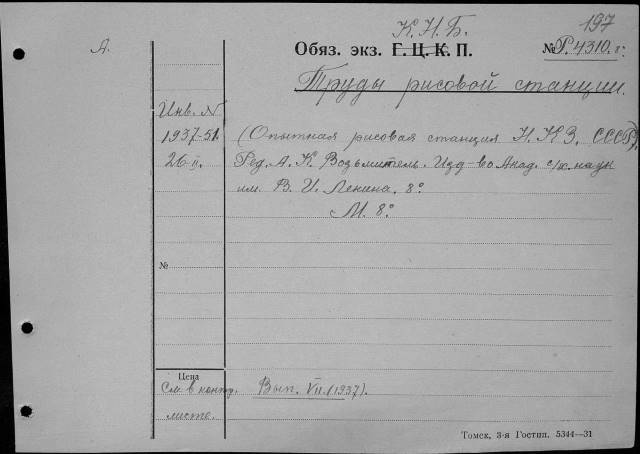 К.Н.Б.
197
А.
Обяз. экз. Г. Ц. К. П.
№ Р.4310.г.
Труды рисовой станции.
Инв. №
1937-51.
26-II.
(Опытная рисовая станция Н.К.З. СССР).
Ред. А. К. Возьмитель. Изд-во Акад. с/х. наук
им. В. И. Ленина. 8°
М. 8°
№
Цена
См. в конт. Вып. VII. (1937).
листе.
Томск, 3-я Гостип. 5344—31